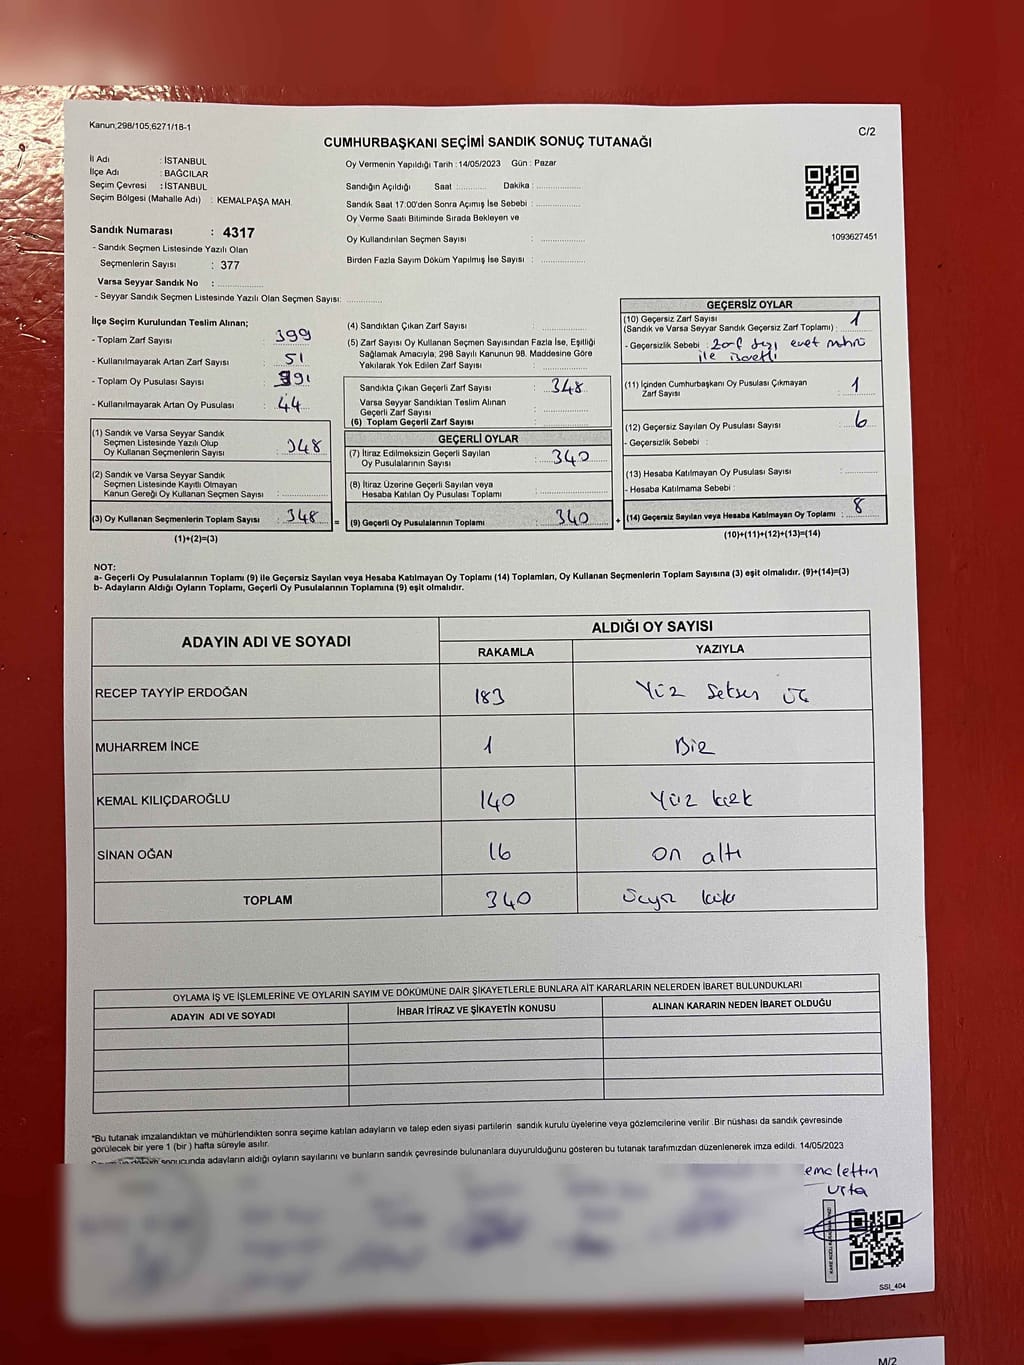 Kanun;298/105;6271/18-1
C/2
CUMHURBAŞKANI SEÇİMİ SANDIK SONUÇ TUTANAĞI
İl Adı : İSTANBUL
İlçe Adı : BAĞCILAR
Seçim Çevresi : İSTANBUL
Seçim Bölgesi (Mahalle Adı) : KEMALPAŞA MAH.
Sandık Numarası : 4317
- Sandık Seçmen Listesinde Yazılı Olan
Seçmenlerin Sayısı : 377
Varsa Seyyar Sandık No :
- Seyyar Sandık Seçmen Listesinde Yazılı Olan Seçmen Sayısı:
Oy Vermenin Yapıldığı Tarih : 14/05/2023 Gün : Pazar
Sandığın Açıldığı Saat : Dakika :
Sandık Saat 17:00'den Sonra Açımış İse Sebebi :
Oy Verme Saati Bitiminde Sırada Bekleyen ve
Oy Kullandırılan Seçmen Sayısı :
Birden Fazla Sayım Döküm Yapılmış İse Sayısı :
1093627451
İlçe Seçim Kurulundan Teslim Alınan;
- Toplam Zarf Sayısı : 399
- Kullanılmayarak Artan Zarf Sayısı : 51
- Toplam Oy Pusulası Sayısı : 391
- Kullanılmayarak Artan Oy Pusulası : 44
(1) Sandık ve Varsa Seyyar Sandık
Seçmen Listesinde Yazılı Olup
Oy Kullanan Seçmenlerin Sayısı : 348
(2) Sandık ve Varsa Seyyar Sandık
Seçmen Listesinde Kayıtlı Olmayan
Kanun Gereği Oy Kullanan Seçmen Sayısı :
(3) Oy Kullanan Seçmenlerin Toplam Sayısı : 348
(1)+(2)=(3)
=
(4) Sandıktan Çıkan Zarf Sayısı :
(5) Zarf Sayısı Oy Kullanan Seçmen Sayısından Fazla İse, Eşitliği
Sağlamak Amacıyla, 298 Sayılı Kanunun 98. Maddesine Göre
Yakılarak Yok Edilen Zarf Sayısı :
Sandıkta Çıkan Geçerli Zarf Sayısı : 348
Varsa Seyyar Sandıktan Teslim Alınan
Geçerli Zarf Sayısı :
(6) Toplam Geçerli Zarf Sayısı :
GEÇERLİ OYLAR
(7) İtiraz Edilmeksizin Geçerli Sayılan
Oy Pusulalarının Sayısı : 340
(8) İtiraz Üzerine Geçerli Sayılan veya
Hesaba Katılan Oy Pusulası Toplamı :
(9) Geçerli Oy Pusulalarının Toplamı : 340
+
GEÇERSİZ OYLAR
(10) Geçersiz Zarf Sayısı
(Sandık ve Varsa Seyyar Sandık Geçersiz Zarf Toplamı) : 1
- Geçersizlik Sebebi : evet mührü
ile
(11) İçinden Cumhurbaşkanı Oy Pusulası Çıkmayan
Zarf Sayısı : 1
(12) Geçersiz Sayılan Oy Pusulası Sayısı : 6
- Geçersizlik Sebebi :
(13) Hesaba Katılmayan Oy Pusulası Sayısı :
- Hesaba Katılmama Sebebi :
(14) Geçersiz Sayılan veya Hesaba Katılmayan Oy Toplamı : 8
(10)+(11)+(12)+(13)=(14)
NOT:
a- Geçerli Oy Pusulalarının Toplamı (9) ile Geçersiz Sayılan veya Hesaba Katılmayan Oy Toplamı (14) Toplamları, Oy Kullanan Seçmenlerin Toplam Sayısına (3) eşit olmalıdır. (9)+(14)=(3)
b- Adayların Aldığı Oyların Toplamı, Geçerli Oy Pusulalarının Toplamına (9) eşit olmalıdır.
ADAYIN ADI VE SOYADI ALDIĞI OY SAYISI
RAKAMLA YAZIYLA
RECEP TAYYİP ERDOĞAN 183 Yüz seksen üç
MUHARREM İNCE 1 Bir
KEMAL KILIÇDAROĞLU 140 Yüz kırk
SİNAN OĞAN 16 on altı
TOPLAM 340 üçyüz kırk
OYLAMA İŞ VE İŞLEMLERİNE VE OYLARIN SAYIM VE DÖKÜMÜNE DAİR ŞİKAYETLERLE BUNLARA AİT KARARLARIN NELERDEN İBARET BULUNDUKLARI
ADAYIN ADI VE SOYADI İHBAR İTİRAZ VE ŞİKAYETİN KONUSU ALINAN KARARIN NEDEN İBARET OLDUĞU
*Bu tutanak imzalandıktan ve mühürlendikten sonra seçime katılan adayların ve talep eden siyasi partilerin sandık kurulu üyelerine veya gözlemcilerine verilir. Bir nüshası da sandık çevresinde
görülecek bir yere 1 (bir) hafta süreyle asılır.
sonucunda adayların aldığı oyların sayılarını ve bunların sandık çevresinde bulunanlara duyurulduğunu gösteren bu tutanak tarafımızdan düzenlenerek imza edildi. 14/05/2023
emalettin
Usta
SSI_404
M/2